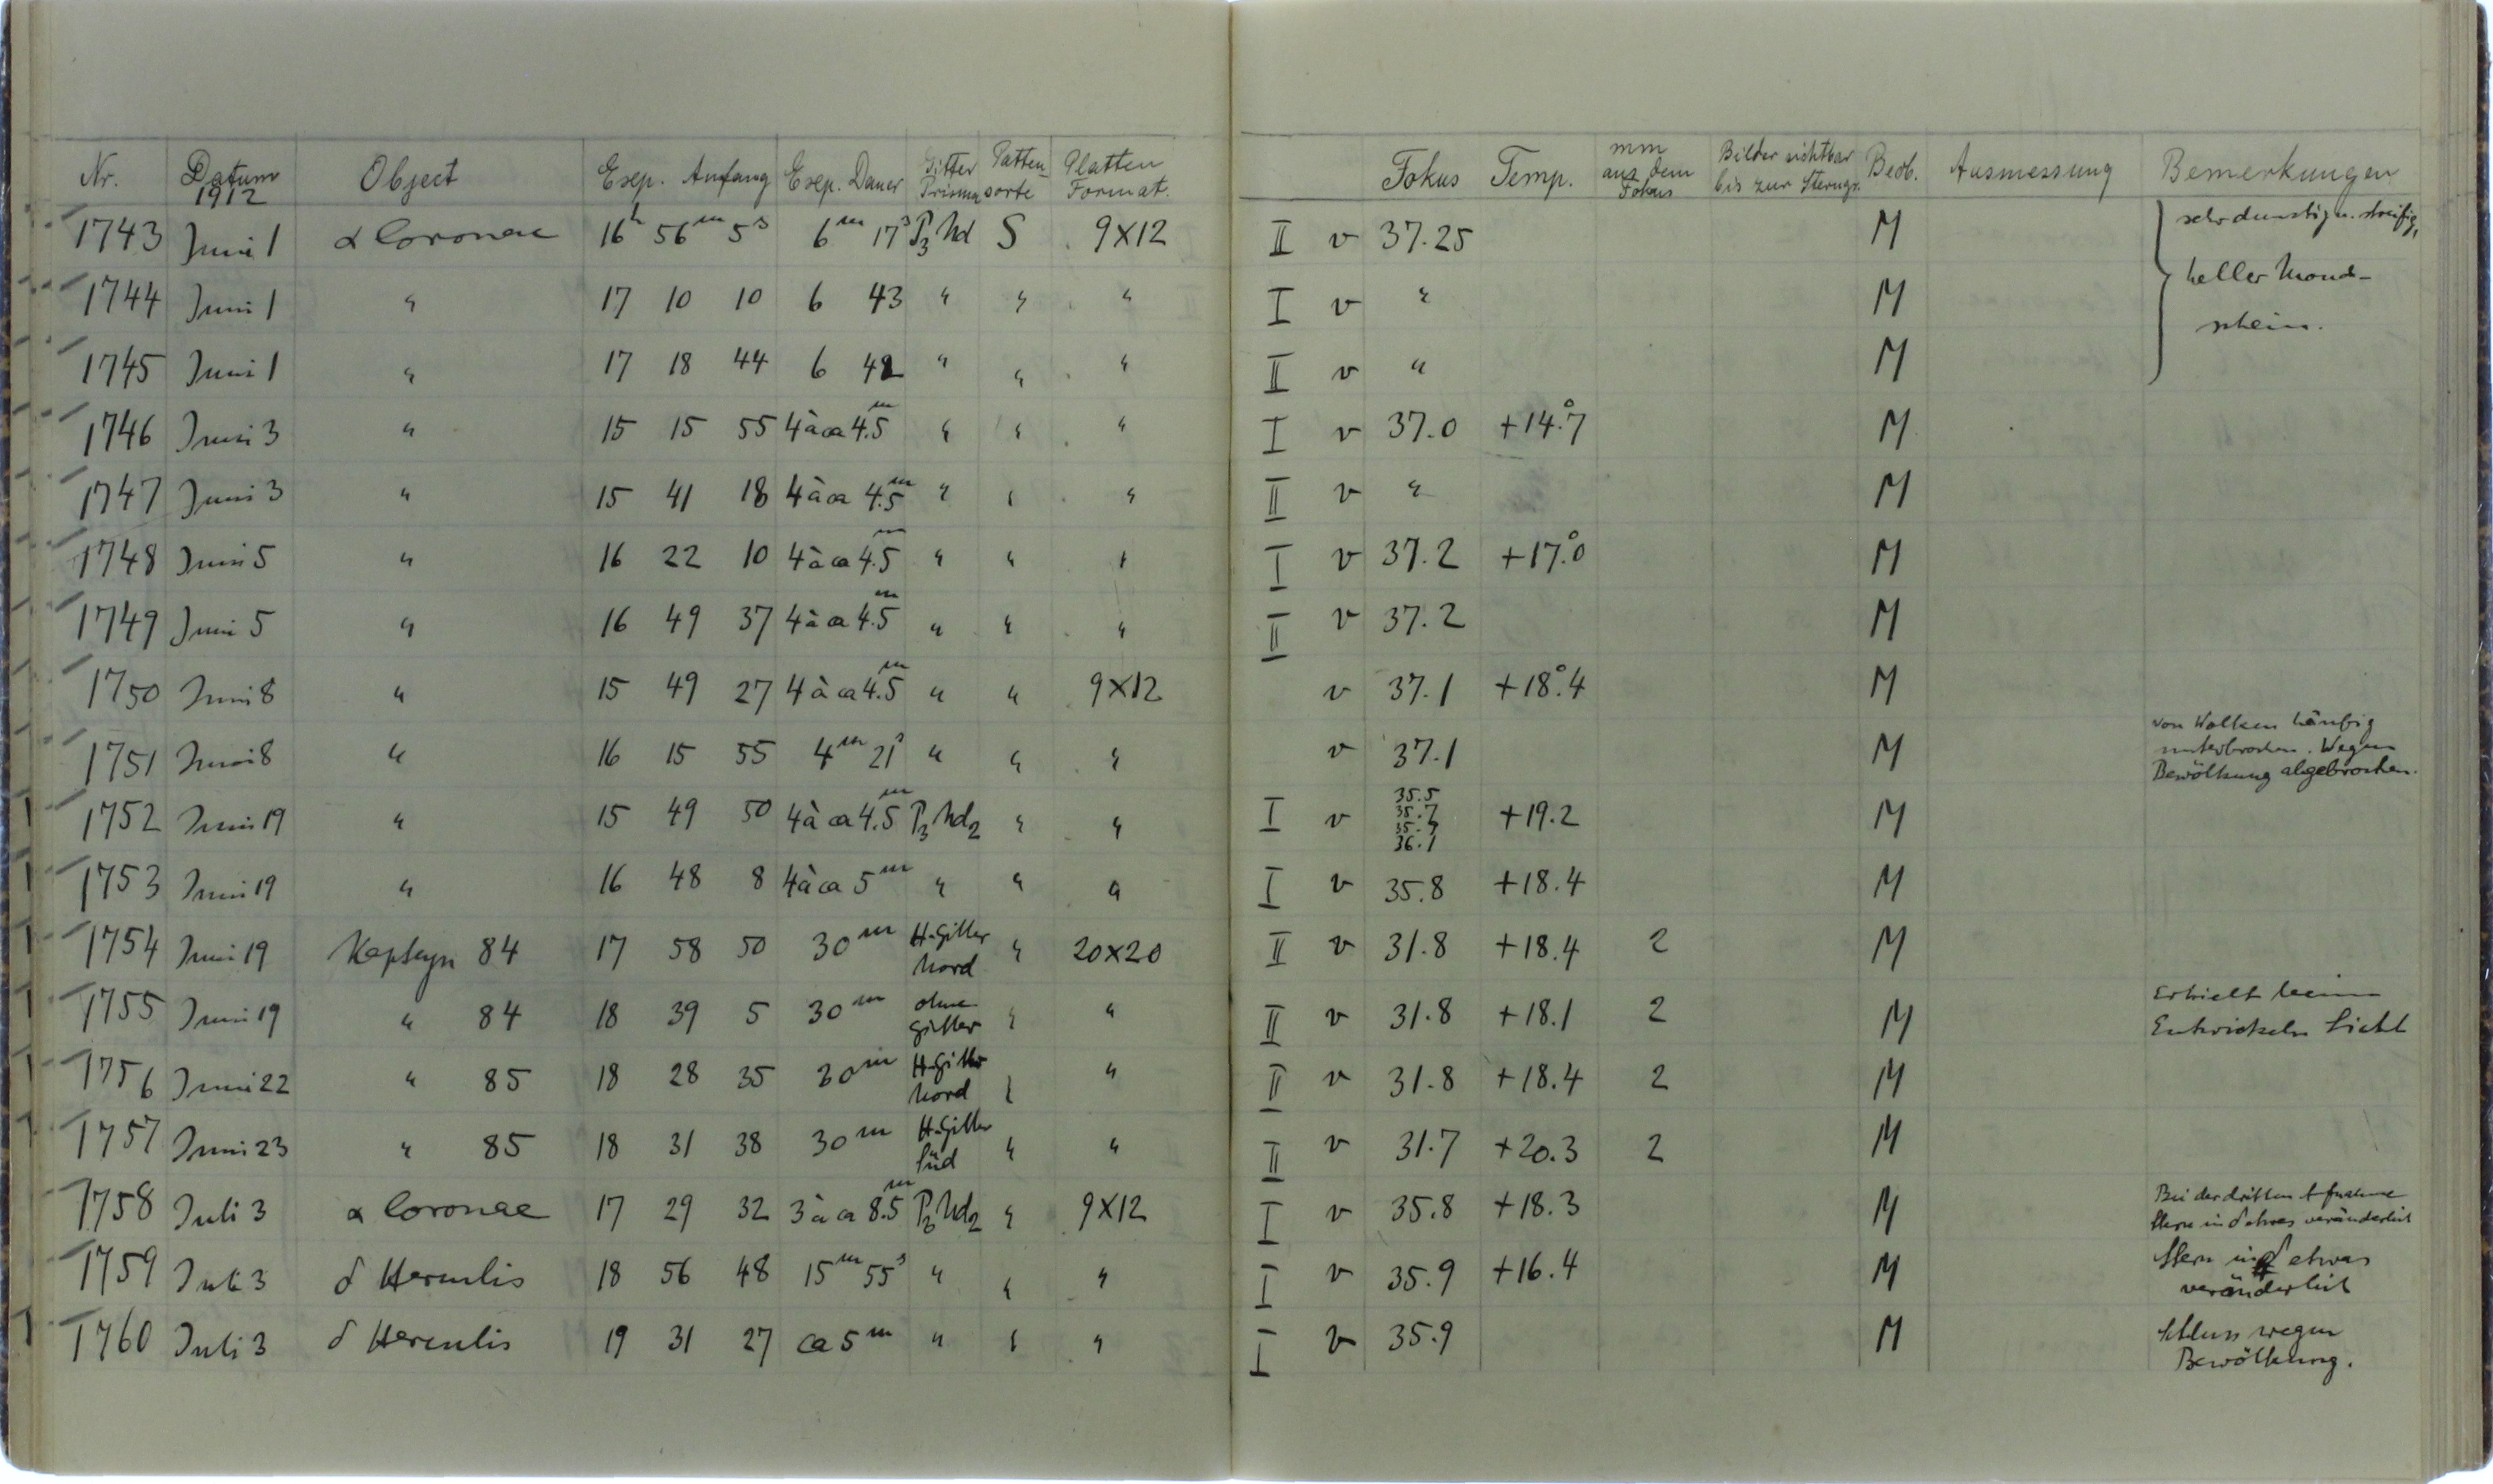 Nr. Datum 1912 Object Exp. Anfang Exp. Dauer Gitter Prisma Platten-sorte Platten Format. Fokus Temp. mm aus dem Fokus Bilder sichtbar bis zur Sterngr. Beob. Ausmessung Bemerkungen
1743 Juni 1 α Coronae 16h 56m 5s 6m 17s P3 Nd S 9X12 II v 37.25 M sehr dunstig u. streifig,
1744 Juni 1 " 17 10 10 6 43 " " " I v " M heller Mond-
1745 Juni 1 " 17 18 44 6 42 " " " II v " M schein.
1746 Juni 3 " 15 15 55 4 à ca 4.5m " " " I v 37.0 +14°.7 M
1747 Juni 3 " 15 41 18 4 à ca 4.5m " " " II v " M
1748 Juni 5 " 16 22 10 4 à ca 4.5m " " " I v 37.2 +17°.0 M
1749 Juni 5 " 16 49 37 4 à ca 4.5m " " " II v 37.2 M
1750 Juni 8 " 15 49 27 4 à ca 4.5m " " 9X12 v 37.1 +18°.4 M
1751 Juni 8 " 16 15 55 4m 21s " " " v 37.1 M von Wolken häufig unterbrochen. Wegen Bewölkung abgebrochen.
1752 Juni 19 " 15 49 50 4 à ca 4.5m P3 Nd2 " " I v 35.5 35.7 35.9 36.1 +19.2 M
1753 Juni 19 " 16 48 8 4 à ca 5m " " " I v 35.8 +18.4 M
1754 Juni 19 Kapteyn 84 17 58 50 30m H-Gitter Nord " 20X20 II v 31.8 +18.4 2 M
1755 Juni 19 " 84 18 39 5 30m ohne Gitter " " II v 31.8 +18.1 2 M Erhielt beim Entwickeln Licht
1756 Juni 22 " 85 18 28 35 30m H-Gitter Nord " " II v 31.8 +18.4 2 M
1757 Juni 23 " 85 18 31 38 30m H-Gitter Süd " " II v 31.7 +20.3 2 M
1758 Juli 3 α Coronae 17 29 32 3 à ca 8.5m P3 Nd2 " 9X12 I v 35.8 +18.3 M Bei der dritten Aufnahme Stern in δ etwas veränderlich
1759 Juli 3 δ Herculis 18 56 48 15m 55s " " " I v 35.9 +16.4 M Stern in δ etwas veränderlich
1760 Juli 3 δ Herculis 19 31 27 ca 5m " " " I v 35.9 M Schluss wegen Bewölkung.